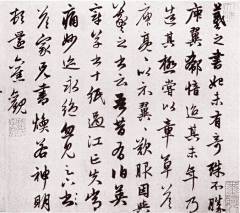 羲之書始未有奇殊不勝
庾翼郗愔迨其末年乃
造其極嘗以章草答
庾亮亮以示翼翼歎服因與
羲之書云吾昔有伯英
章草十紙過江亡失常
痛妙迹永絕忽見足下
答家兄書煥若神明
頓還舊觀